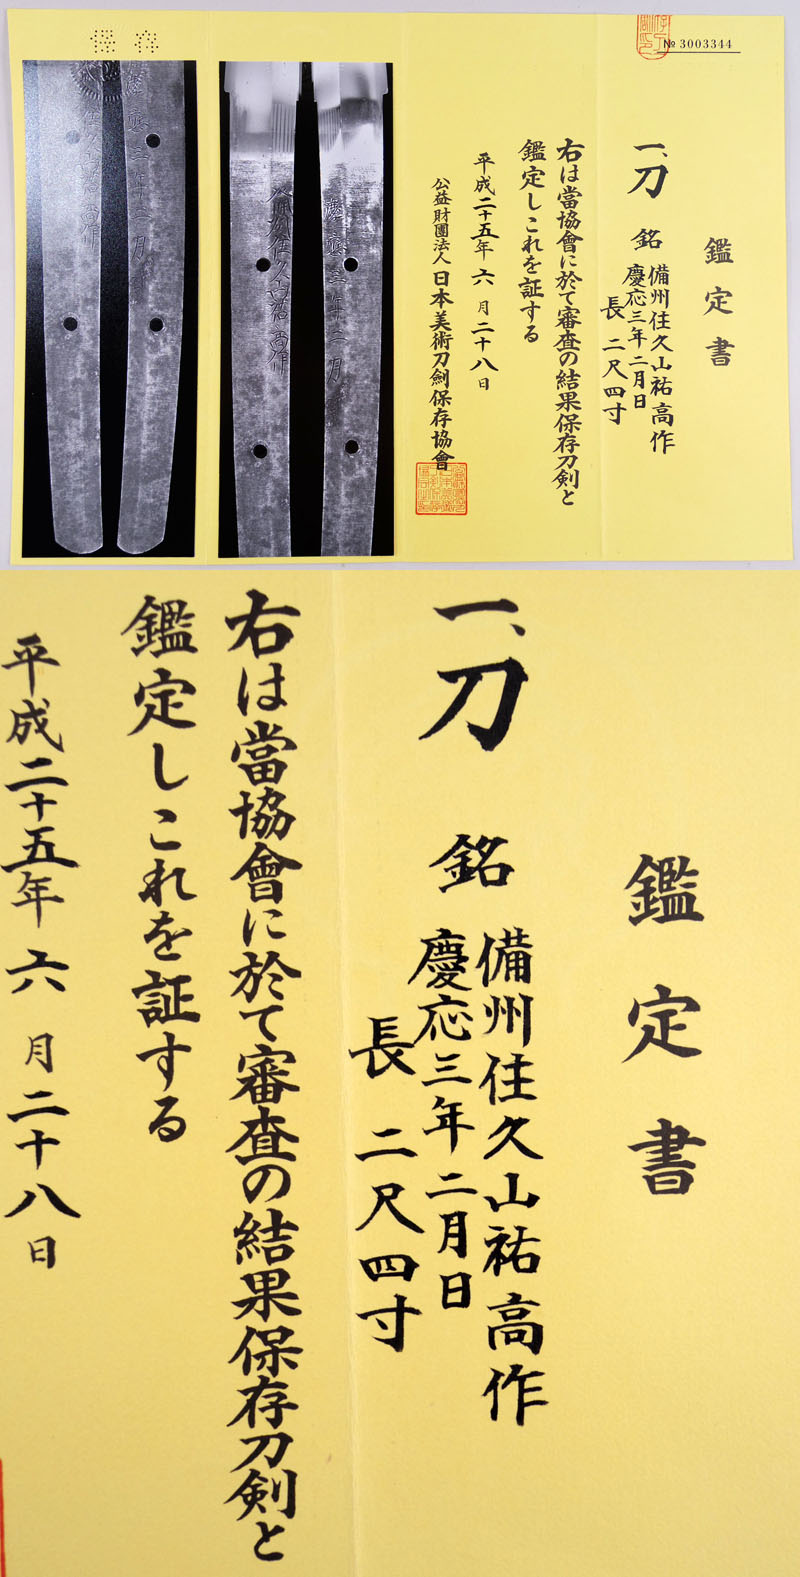 保存
№ 3003344
鑑定書
一、刀 銘 備州住久山祐高作
慶応三年二月日
長 二尺四寸
右は當協會に於て審査の結果保存刀剣と
鑑定しこれを証する
平成二十五年 六 月二十八日
公益財團法人 日本美術刀劍保存協會
鑑定書
一、刀 銘 備州住久山祐高作
慶応三年二月日
長 二尺四寸
右は當協會に於て審査の結果保存刀剣と
鑑定しこれを証する
平成二十五年 六 月二十八日